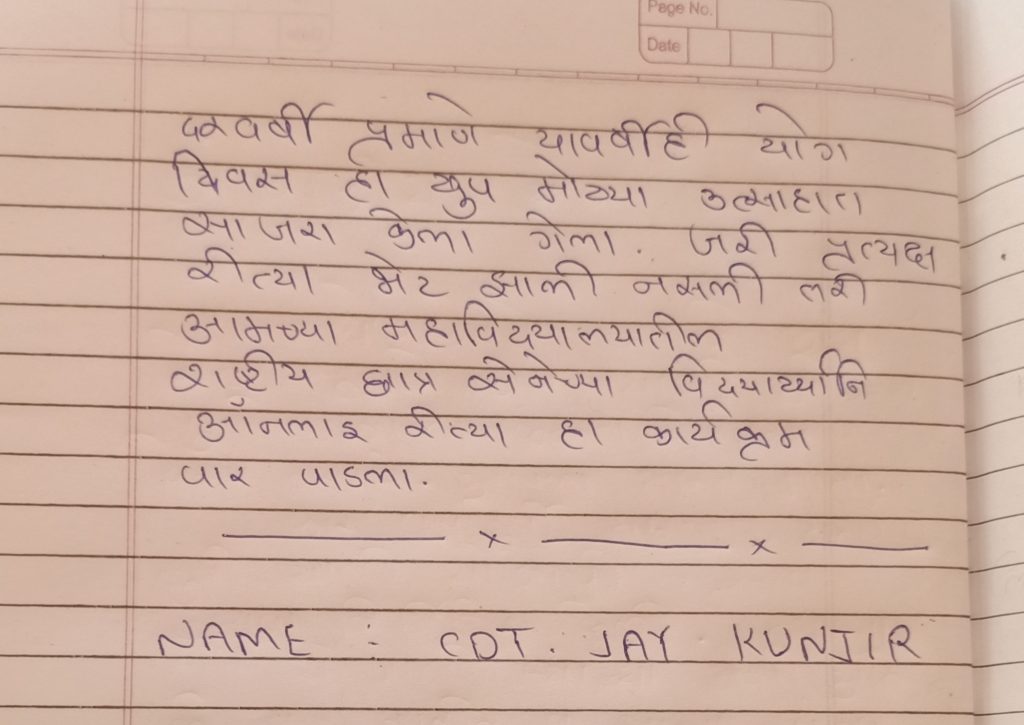 Page No.
Date
दरवर्षी प्रमाणे यावर्षीही योग
दिवस हा खुप मोठ्या उत्साहात
साजरा केला गेला. जरी प्रत्यक्ष
रीत्या भेट झाली नसली तरी
आमच्या महाविदयालयातील
राष्ट्रीय छात्र सेनेच्या विदयार्थ्यानि
ऑनलाइ रीत्या हा कार्यक्रम
पार पाडला.
x x
NAME : CDT. JAY KUNJIR